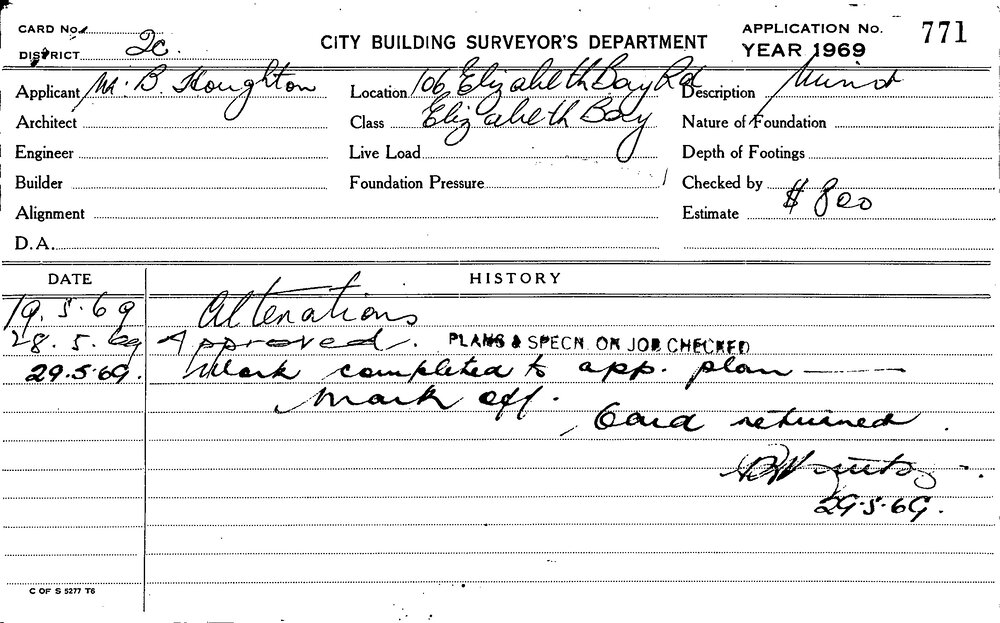 CARD No.
DISTRICT 2c.
CITY BUILDING SURVEYOR'S DEPARTMENT
APPLICATION No. 771
YEAR 1969
Applicant M. B. Houghton
Location 106 Elizabeth Bay Rd
Description
Architect
Class Elizabeth Bay
Nature of Foundation
Engineer
Live Load
Depth of Footings
Builder
Foundation Pressure
Checked by
Alignment
Estimate $800
D.A.
DATE HISTORY
19.5.69 Alterations
28.5.69 Approved. PLANS & SPECN. ON JOB CHECKED
29.5.69. Work completed to app. plan
Mark off.
Card returned.
29.5.69.
C OF S 5277 T6